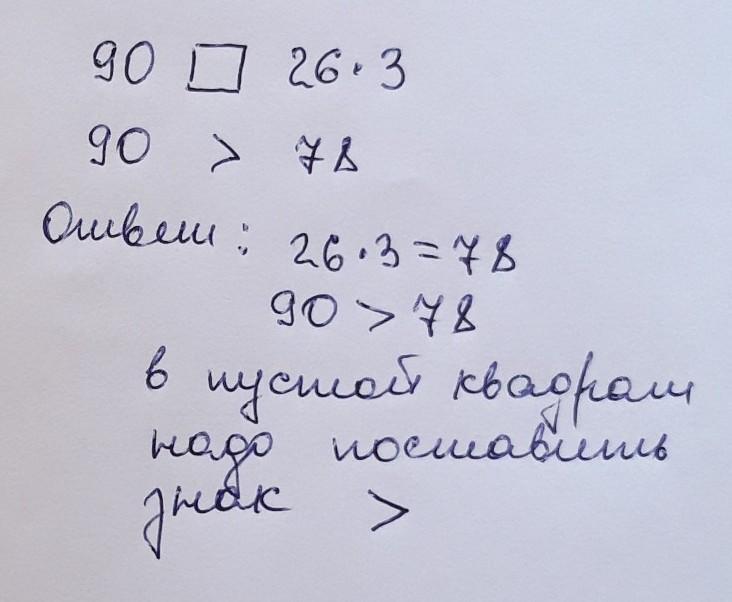 90 □ 26·3
90 > 78
Ответ: 26·3=78
90 > 78
в пустой квадрат
надо поставить
знак >